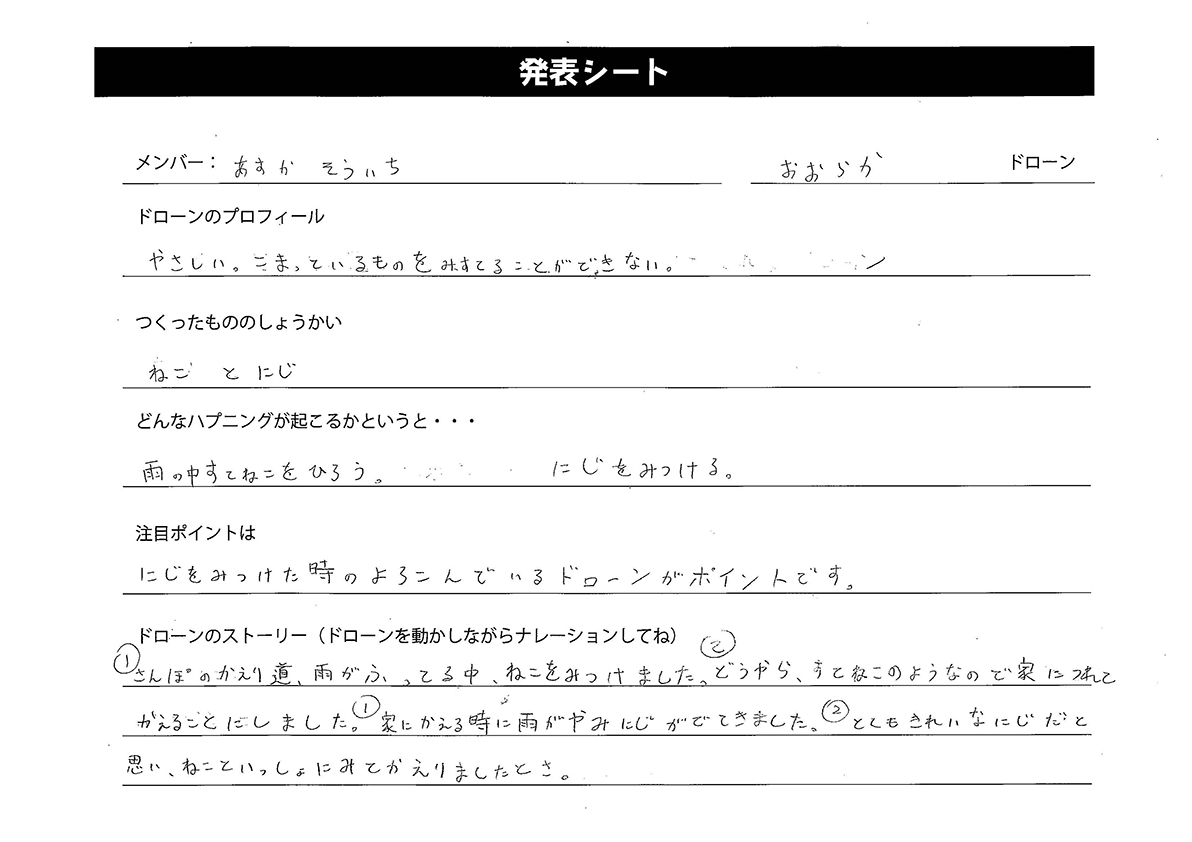 発表シート
メンバー： あすか そういち おおらか ドローン
ドローンのプロフィール
やさしい。こまっているものをみすてることができない。
つくったもののしょうかい
ねこ と にじ
どんなハプニングが起こるかというと・・・
雨の中すてねこをひろう。 にじをみつける。
注目ポイントは
にじをみつけた時のよろこんでいるドローンがポイントです。
ドローンのストーリー（ドローンを動かしながらナレーションしてね）
①さんぽのかえり道、雨がふってる中、ねこをみつけました。②どうやら、すてねこのようなので家につれて
かえることにしました。①家にかえる時に雨がやみにじがでてきました。②とてもきれいなにじだと
思い、ねこといっしょにみてかえりましたとさ。